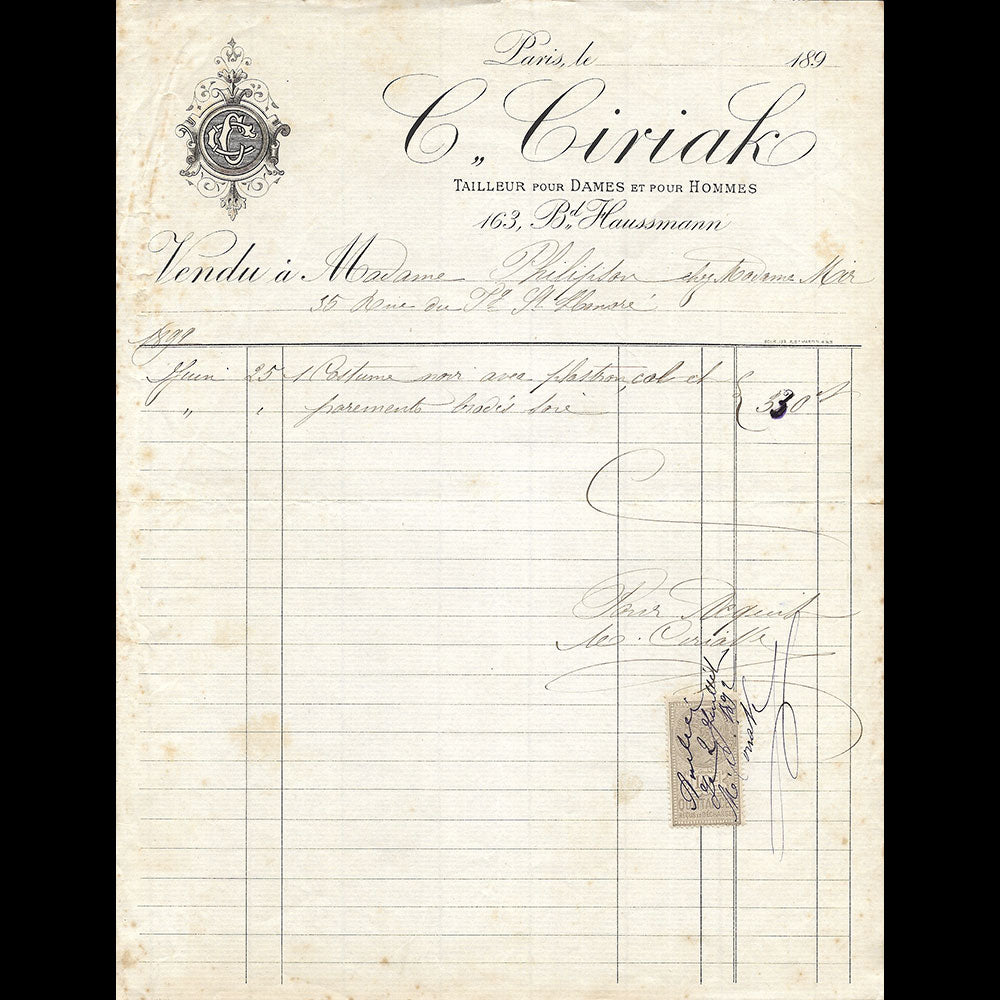 Paris, le 189
CC
C. Ciriak
TAILLEUR POUR DAMES ET POUR HOMMES
163, Bd Haussmann
Vendu à Madame Philipson chez Madame Mir
35 Rue du Fg St Honoré
1892
Juin 25 1 Costume noir avec plastron, col et
" " parements brodés soie 530
Pour Acquit
C. Ciriak
Paris
le 2 Juillet
1892
QUITTANCES
REÇUS ET DÉCHARGES